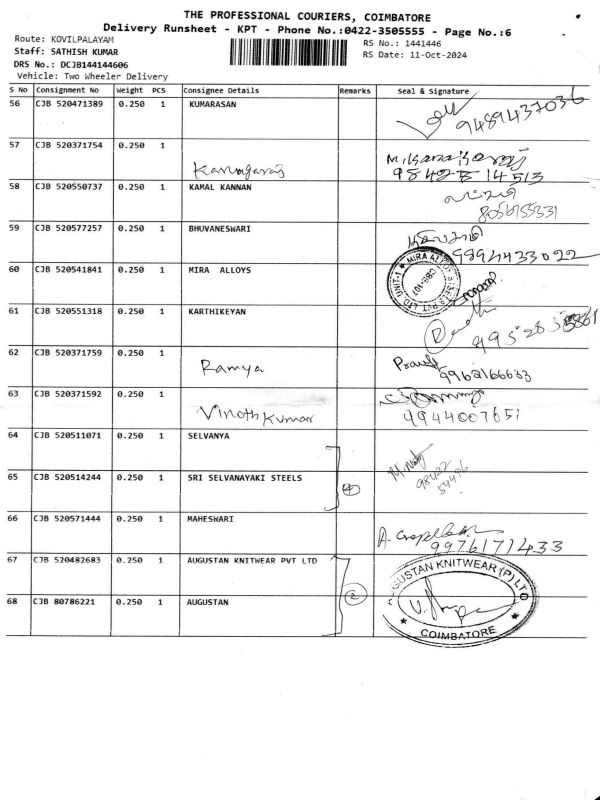 THE PROFESSIONAL COURIERS, COIMBATORE
Delivery Runsheet - KPT - Phone No.:0422-3505555 - Page No.:6
Route: KOVILPALAYAM
RS No.: 1441446
Staff: SATHISH KUMAR
RS Date: 11-Oct-2024
DRS No.: DCJB144144606
Vehicle: Two Wheeler Delivery
S No Consignment No Weight PCS Consignee Details Remarks Seal & Signature
56 CJB 520471389 0.250 1 KUMARASAN
9489437036
57 CJB 520371754 0.250 1
Kanagaraj
98425 14513
58 CJB 520550737 0.250 1 KAMAL KANNAN
59 CJB 520577257 0.250 1 BHUVANESWARI
9894433022
60 CJB 520541841 0.250 1 MIRA ALLOYS
61 CJB 520551318 0.250 1 KARTHIKEYAN
62 CJB 520371759 0.250 1
Ramya
9962166633
63 CJB 520371592 0.250 1
Vinoth Kumar
9944007651
64 CJB 520511071 0.250 1 SELVANYA
65 CJB 520514244 0.250 1 SRI SELVANAYAKI STEELS
66 CJB 520571444 0.250 1 MAHESWARI
9976171433
67 CJB 520482683 0.250 1 AUGUSTAN KNITWEAR PVT LTD
2
AUGUSTAN KNITWEAR (P) LTD
COIMBATORE
68 CJB 80786221 0.250 1 AUGUSTAN